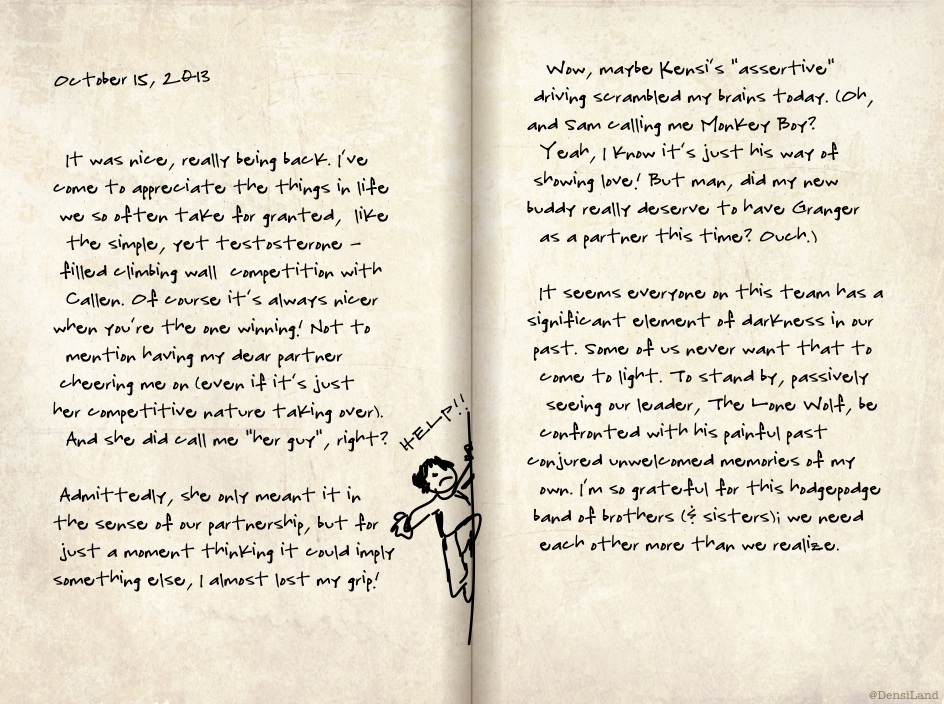 October 15, 2013
It was nice, really being back. I've
come to appreciate the things in life
we so often take for granted, like
the simple, yet testosterone -
filled climbing wall competition with
Callen. Of course it's always nicer
when you're the one winning! Not to
mention having my dear partner
cheering me on (even if it's just
her competitive nature taking over).
And she did call me "her guy", right?
Admittedly, she only meant it in
the sense of our partnership, but for
just a moment thinking it could imply
something else, I almost lost my grip!
HELP!!
Wow, maybe Kensi's "assertive"
driving scrambled my brains today. (Oh,
and Sam calling me Monkey Boy?
Yeah, I know it's just his way of
showing love! But man, did my new
buddy really deserve to have Granger
as a partner this time? Ouch.)
It seems everyone on this team has a
significant element of darkness in our
past. Some of us never want that to
come to light. To stand by, passively
seeing our leader, The Lone Wolf, be
confronted with his painful past
conjured unwelcomed memories of my
own. I'm so grateful for this hodgepodge
band of brothers (& sisters); we need
each other more than we realize.
@DensiLand